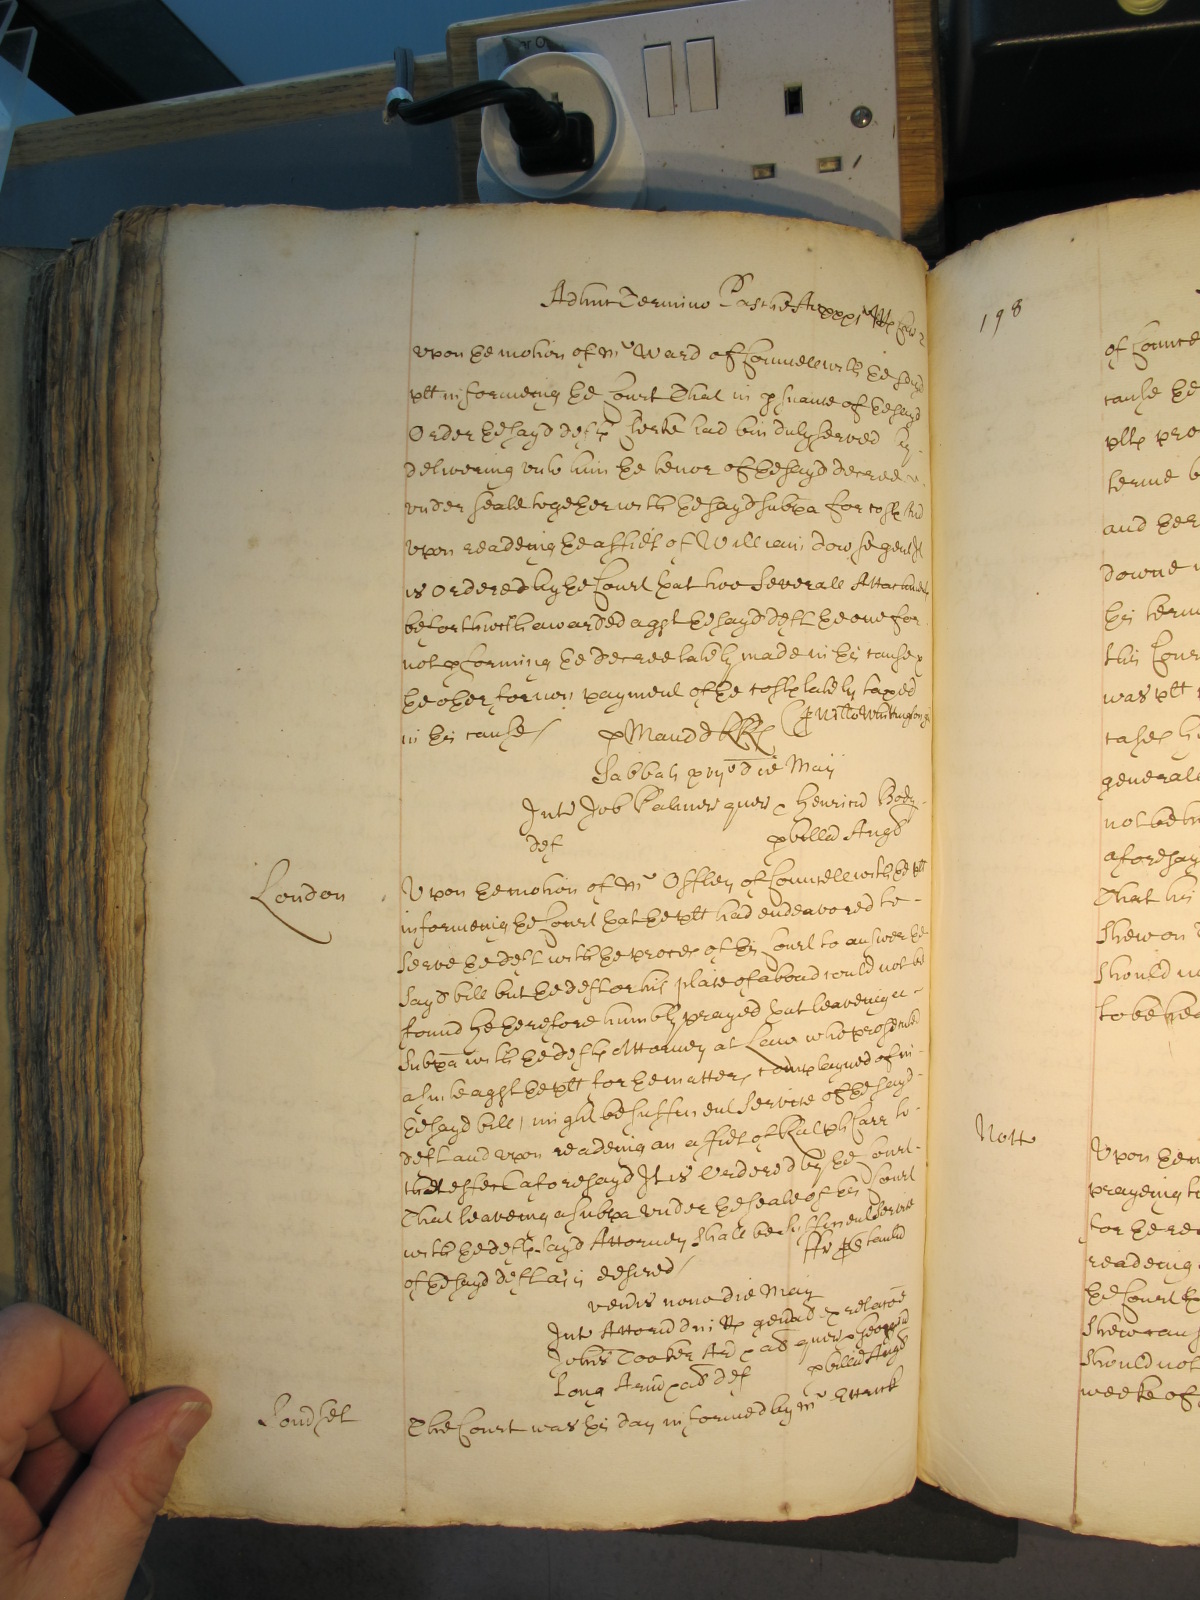 Adhuc Termino Pasche Anno xxxj
vpon the motion of Mr Ward of Councell with the sayd
plt informeing the Court That in psuance of the sayd
Order the sayd deft had bin duly served by
delivering vnto him the tenor of the sayd decree
vnder seale together with the sayd subpa for costs And
vpon readeing the affidt of William Dowse gent It
is Ordered by the Court that two severall Attachmts
be forthwith awarded agst the sayd deft the one for
not pforming the decree lately made in this cause
the other for non payment of the costs lately taxed
in this cause
Sabbati xvijo die Maij
Inter Job Palmer quer Henricu Body
def p billa Angl
London
Vpon the motion of Mr Offley of Councell with the plt
informeing the Court that the plt had endeavored to
serve the deft with the proces of this Court to answer the
sayd bill but the deft or his place of aboad could not be
found he therefore humbly prayed that leaveing a
subpa with the defts Attorney at Law who prosecuted
a suite agst the plt for the matters complayned of in
the sayd bill might be sufficient service of the sayd
deft and vpon readeing an affidt of Ralph Carr to
the effect aforesayd It is Ordered by the Court
That leaveing a subpa vnder the seale of this Court
with the defts sayd Attorney shall be sufficient service
of the sayd deft as is desired
ven&#x27;is nono die Maij
Inter Attorn dni genal relacoe
Johis Tooker Ar quer Georgiu
Long Armig def p billa Angl
Somset
The Court was this day informed by Mr Ettrick
198
of Councell
cause the
plts pro
terme b
and ther
downe
this term
this Cour
was plt
cases
generall
not be
aforesayd
That his
shew
should
to be hea
Nott
Vpon the
prayeing
for here
readeing
the Court
shew caus
should not
weeke of